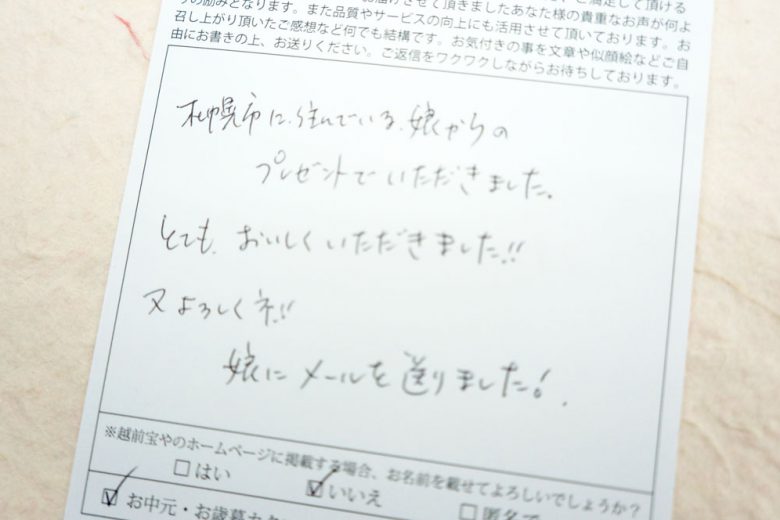 りの励みとなります。また品質やサービスの向上にも活用させて頂いております。お
召し上がり頂いたご感想など何でも結構です。お気付きの事を文章や似顔絵などご自
由にお書きの上、お送りください。ご返信をワクワクしながらお待ちしております。
札幌市に住んでいる、娘からの
プレゼントでいただきました。
とても、おいしくいただきました!!
又よろしくネ!!
娘にメールを送りました!.
※越前宝やのホームページに掲載する場合、お名前を載せてよろしいでしょうか?
□はい ☑いいえ □匿名で
☑お中元・お歳暮カタ